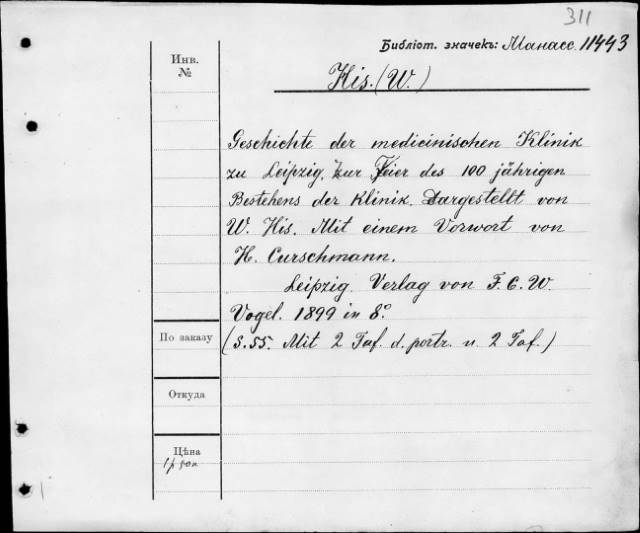 311
Библіот. значекъ: Манасс. 11443
Инв.
№
His. (W.)
Geschichte der medicinischen Klinik
zu Leipzig, zur Feier des 100 jährigen
Bestehens der Klinik. Dargestellt von
W. His. Mit einem Vorwort von
H. Curschmann.
Leipzig. Verlag von F. C. W.
Vogel. 1899 in 8º
(S. 55. Mit 2 Taf. d. portr. u. 2 Taf.)
По заказу
Откуда
Цѣна
1 р.